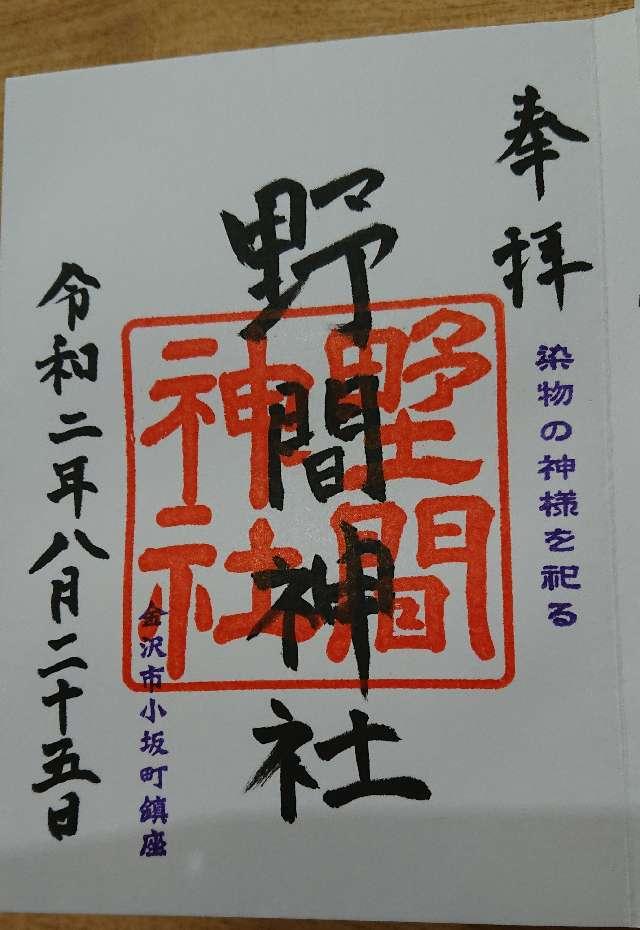 奉拝
染物の神様を祀る
野間神社
野間
神社
金沢市小坂町鎮座
令和二年八月二十五日